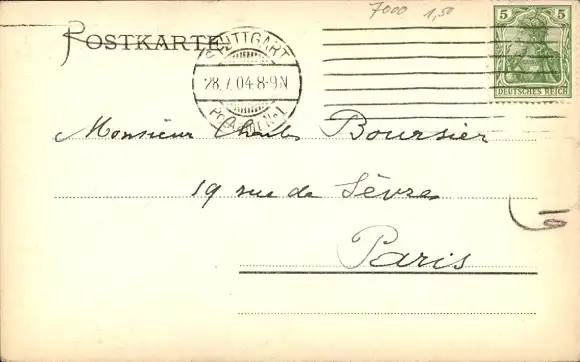 7000 1,50
POSTKARTE
STUTTGART
28.7.04.8-9N
5 5
DEUTSCHES REICH
Monsieur Charles Boursier
19 rue de Sèvres
Paris